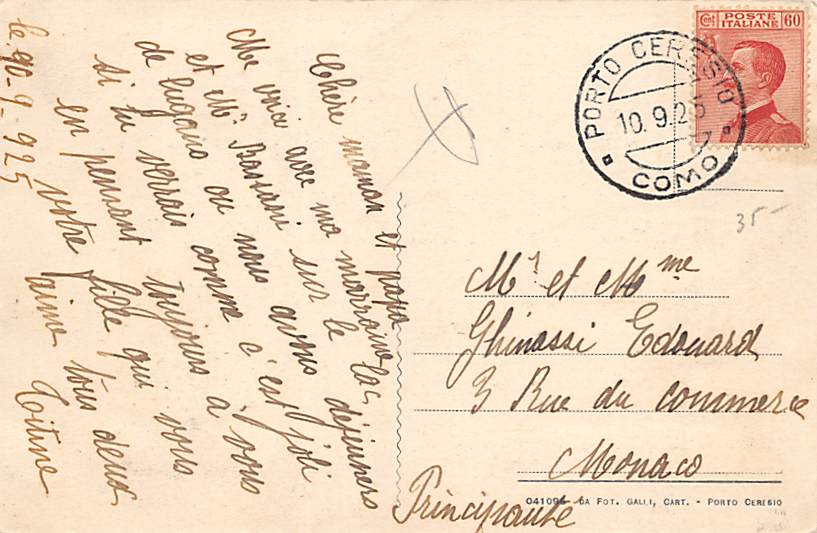 le 90-9-925
Chère maman et papa
Me voici avec ma marraine
et Mr Bastassi sur le lac
de Lugano ou nous avons déjeuners
si tu verrais comme c'est joli
en pensant toujours à vous
votre fille qui vous
aime tous deux
Titine
POSTE
ITALIANE
Cent 60
PORTO CERESIO
10.9.25
COMO
35-
Mr et Mme
Ghinassi Edouard
3 Rue du commerce
Monaco
Principauté
DA FOT. GALLI, CART. - PORTO CERESIO